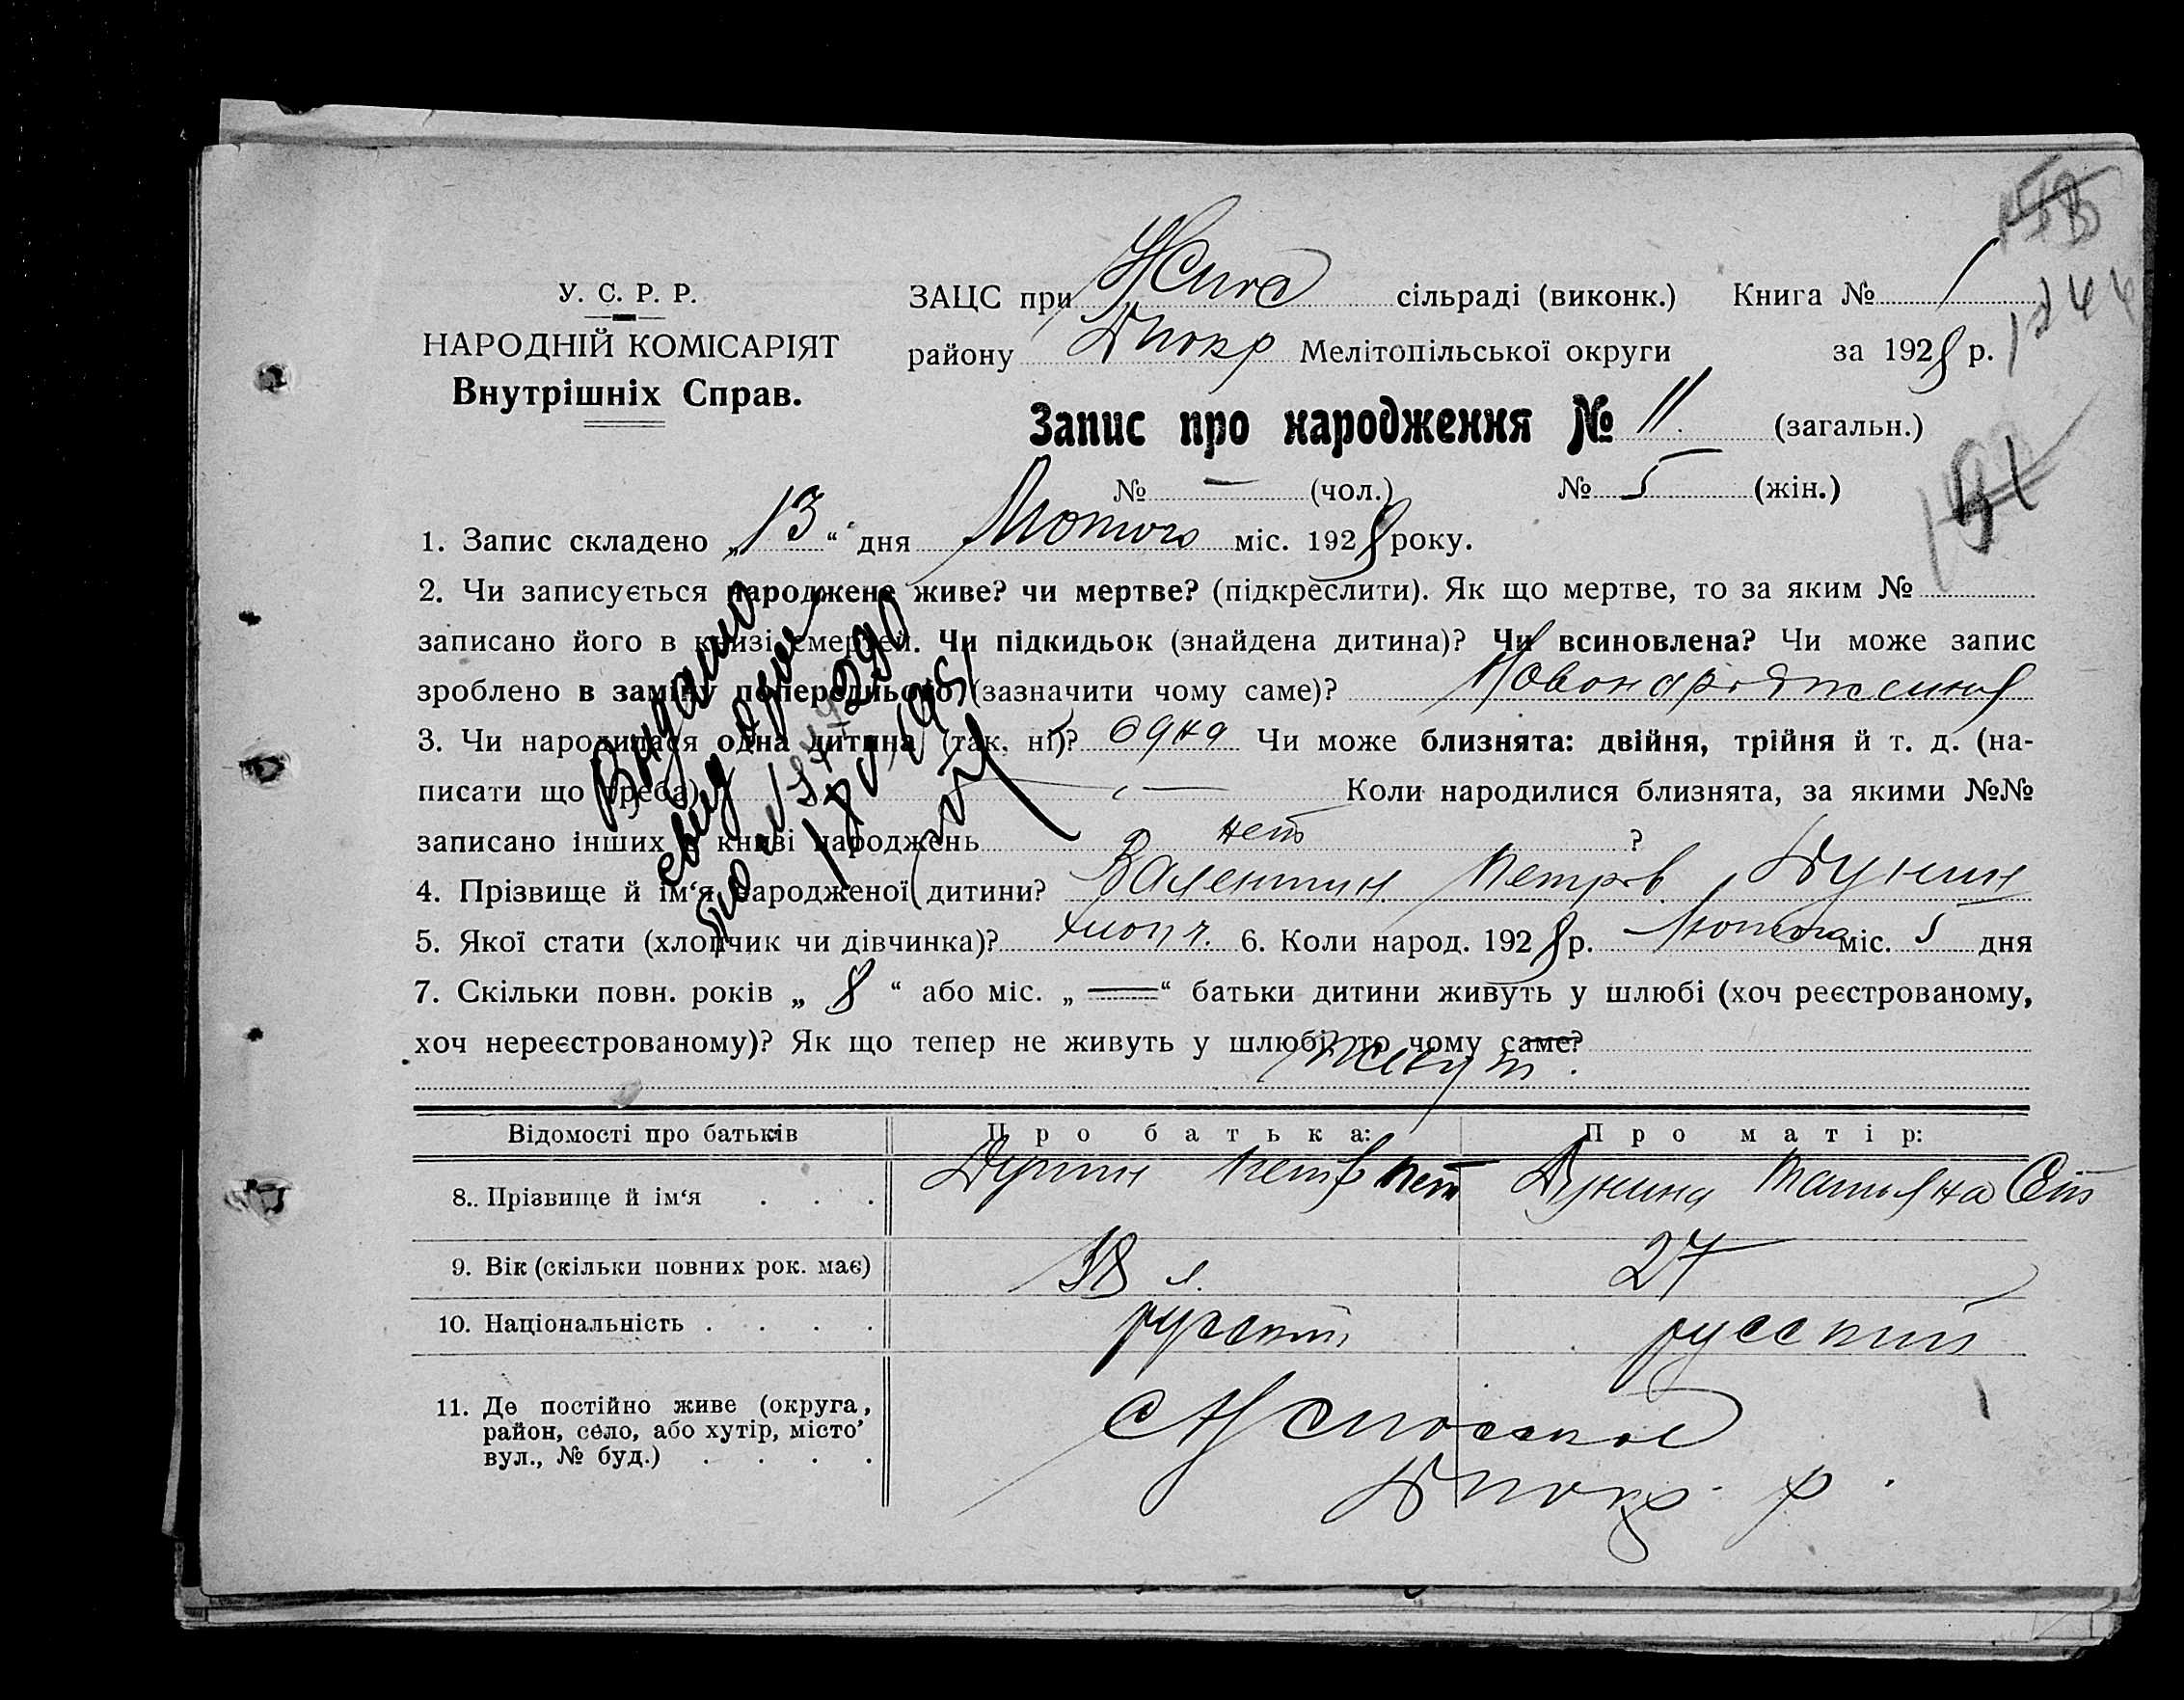 У. С. Р. Р.
НАРОДНІЙ КОМІСАРІЯТ
Внутрішніх Справ.
ЗАЦС при сільраді (виконк.) Книга № 1
району Мелітопільської округи за 1928 р.
Запис про народження № 11 (загальн.)
№ — (чол.) № 5 (жін.)
1. Запис складено „13“ дня Лютого міс. 1928 року.
2. Чи записується народжене живе? чи мертве? (підкреслити). Як що мертве, то за яким №
записано його в книзі смертей. Чи підкидьок (знайдена дитина)? Чи всиновлена? Чи може запис
зроблено в заміну попереднього (зазначити чому саме)?
3. Чи народилася одна дитина (так, ні)? одна Чи може близнята: двійня, трійня й т. д. (на-
писати що треба) — Коли народилися близнята, за якими №№
записано інших в книзі народжень нет ?
4. Прізвище й ім‘я народженої дитини? Валентин Петров Дунин
5. Якої стати (хлопчик чи дівчинка)? хлопч. 6. Коли народ. 1928 р. Лютого міс. 5 дня
7. Скільки повн. років „ 8 “ або міс. „ — “ батьки дитини живуть у шлюбі (хоч реєстрованому,
хоч нереєстрованому)? Як що тепер не живуть у шлюбі, то чому саме?
Живут.
Видано
Відомості про батьків Про батька: Про матір:
8. Прізвище й ім‘я . . . Дунин Петр Пет Дунина Татьяна
9. Вік (скільки повних рок. має) 38 л. 27
10. Національність . . . . русский русский
11. Де постійно живе (округа,
район, село, або хутір, місто
вул., № буд.) . . . .